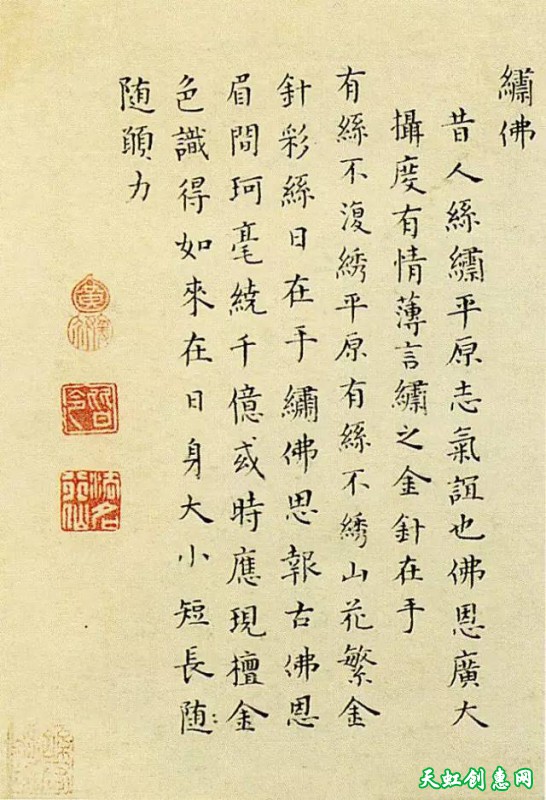 繡佛
昔人絲繡平原志氣誼也佛恩廣大
攝度有情薄言繡之金針在手
有絲不復綉平原有絲不綉山花繁金
針彩絲日在手繡佛思報古佛恩
眉間珂毫繞千億或時應現檀金
色識得如來在日身大小短長随:
随願力
皆令
天虹创惠网